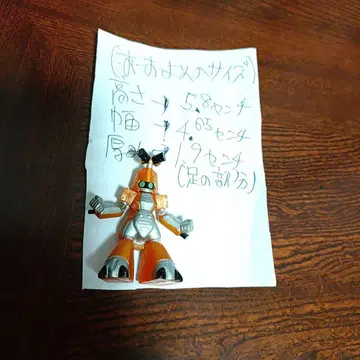 (おおよそのサイズ)
高さ→5.8センチ
幅→4.65センチ
厚み→1.9センチ
(足の部分)